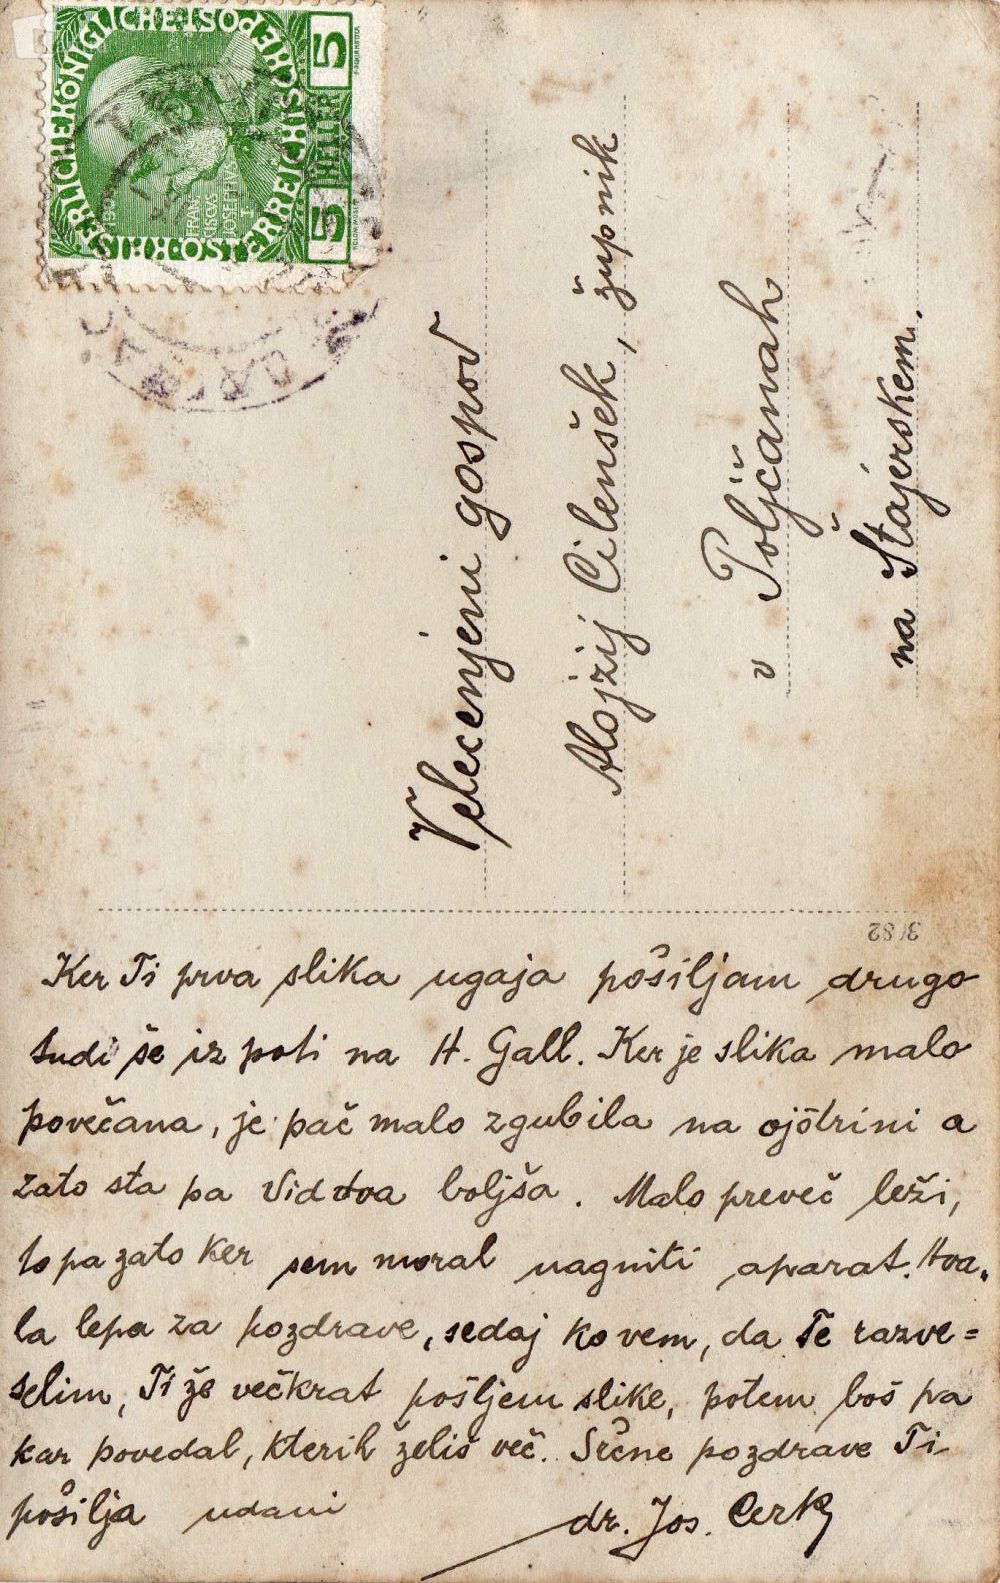 KAISERLICHE KÖNIGLICHE ÖSTERREICHISCHE POST
5 HELLER 5
FRAN
CISCVS
JOSEPHVS
I
Velecenjeni gospod
Alojzij Cilenšek, župnik
v Poljčanah
na Štajerskem.
3182
Ker Ti prva slika ugaja pošiljam drugo
tudi še iz poti na H. Gall. Ker je slika malo
povečana, je pač malo zgubila na ojstrini a
zato sta pa boljša. Malo preveč leži,
to pa zato ker sem moral nagniti aparat. Hva-
la lepa za pozdrave, sedaj ko vem, da Te razve=
selim, Ti že večkrat pošljem slike, potem boš pa
kar povedal, kterih želiš več. Srčne pozdrave Ti
pošilja udani
dr. Jos. Cerk